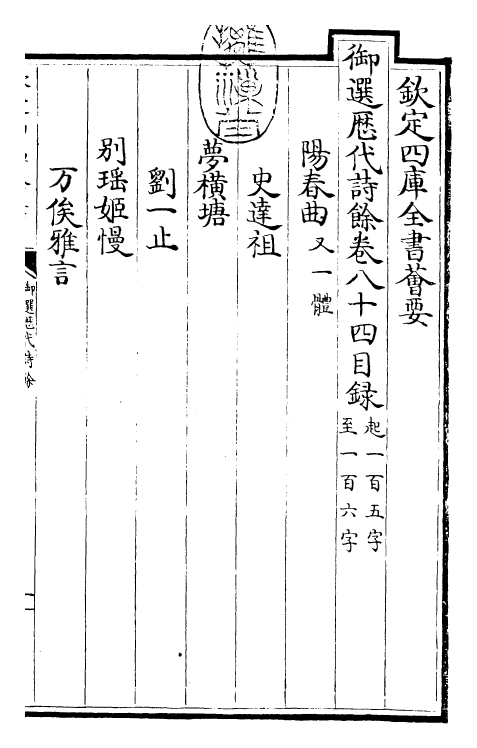 欽定四庫全書薈要
御選歷代詩餘卷八十四目録
起一百五字
至一百六字
陽春曲 又一體
史達祖
夢橫塘
劉一止
别瑶姬慢
万俟雅言
御選歷代詩餘
一